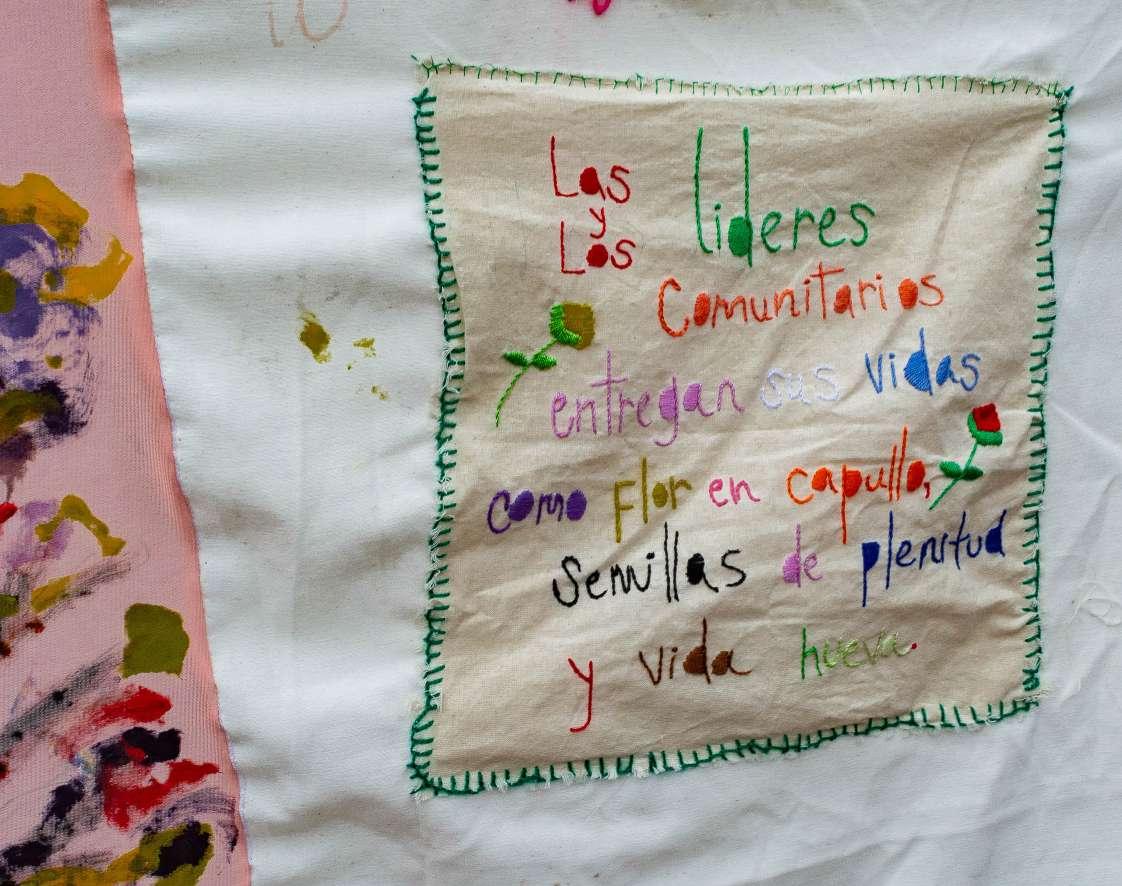 Las
y
Los
lideres
Comunitarios
entregan sus vidas
como Flor en capullo,
Semillas de plenitud
y vida nueva.